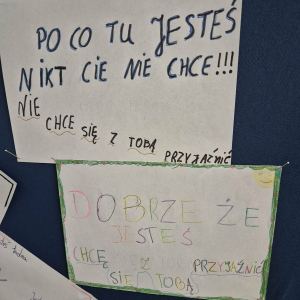 PO CO TU JESTEŚ
NIKT CIE NIE CHCE!!!
NIE
CHCE SIĘ Z TOBĄ PRZYJAŹNIĆ
DOBRZE ŻE
JESTEŚ
CHCĘ Z PRZYJAŹNIĆ
SIĘ TOBĄ